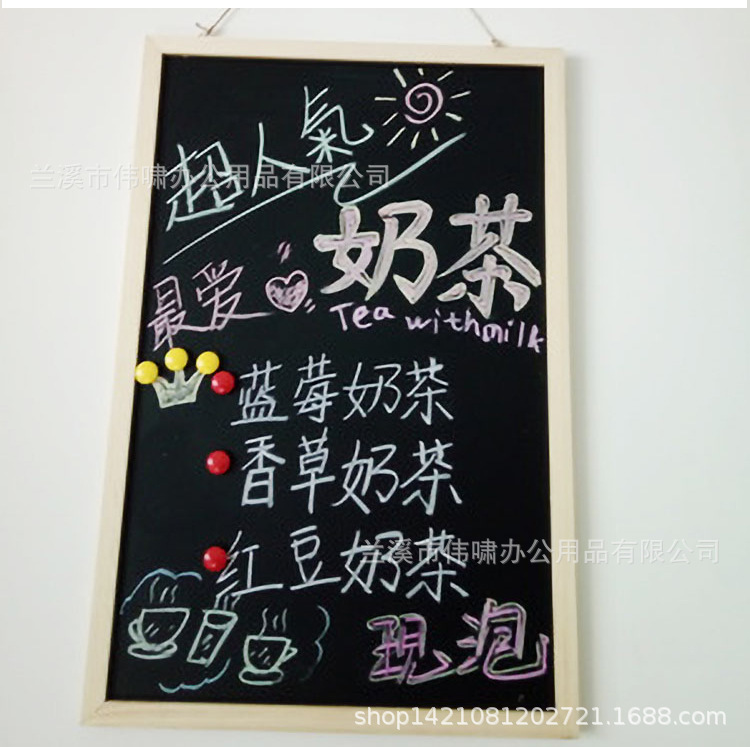 超人氣
兰溪市伟啸办公用品有限公司
奶茶
最爱
Tea with milk
蓝莓奶茶
香草奶茶
红豆奶茶
兰溪市伟啸办公用品有限公司
现泡
shop1421081202721.1688.com